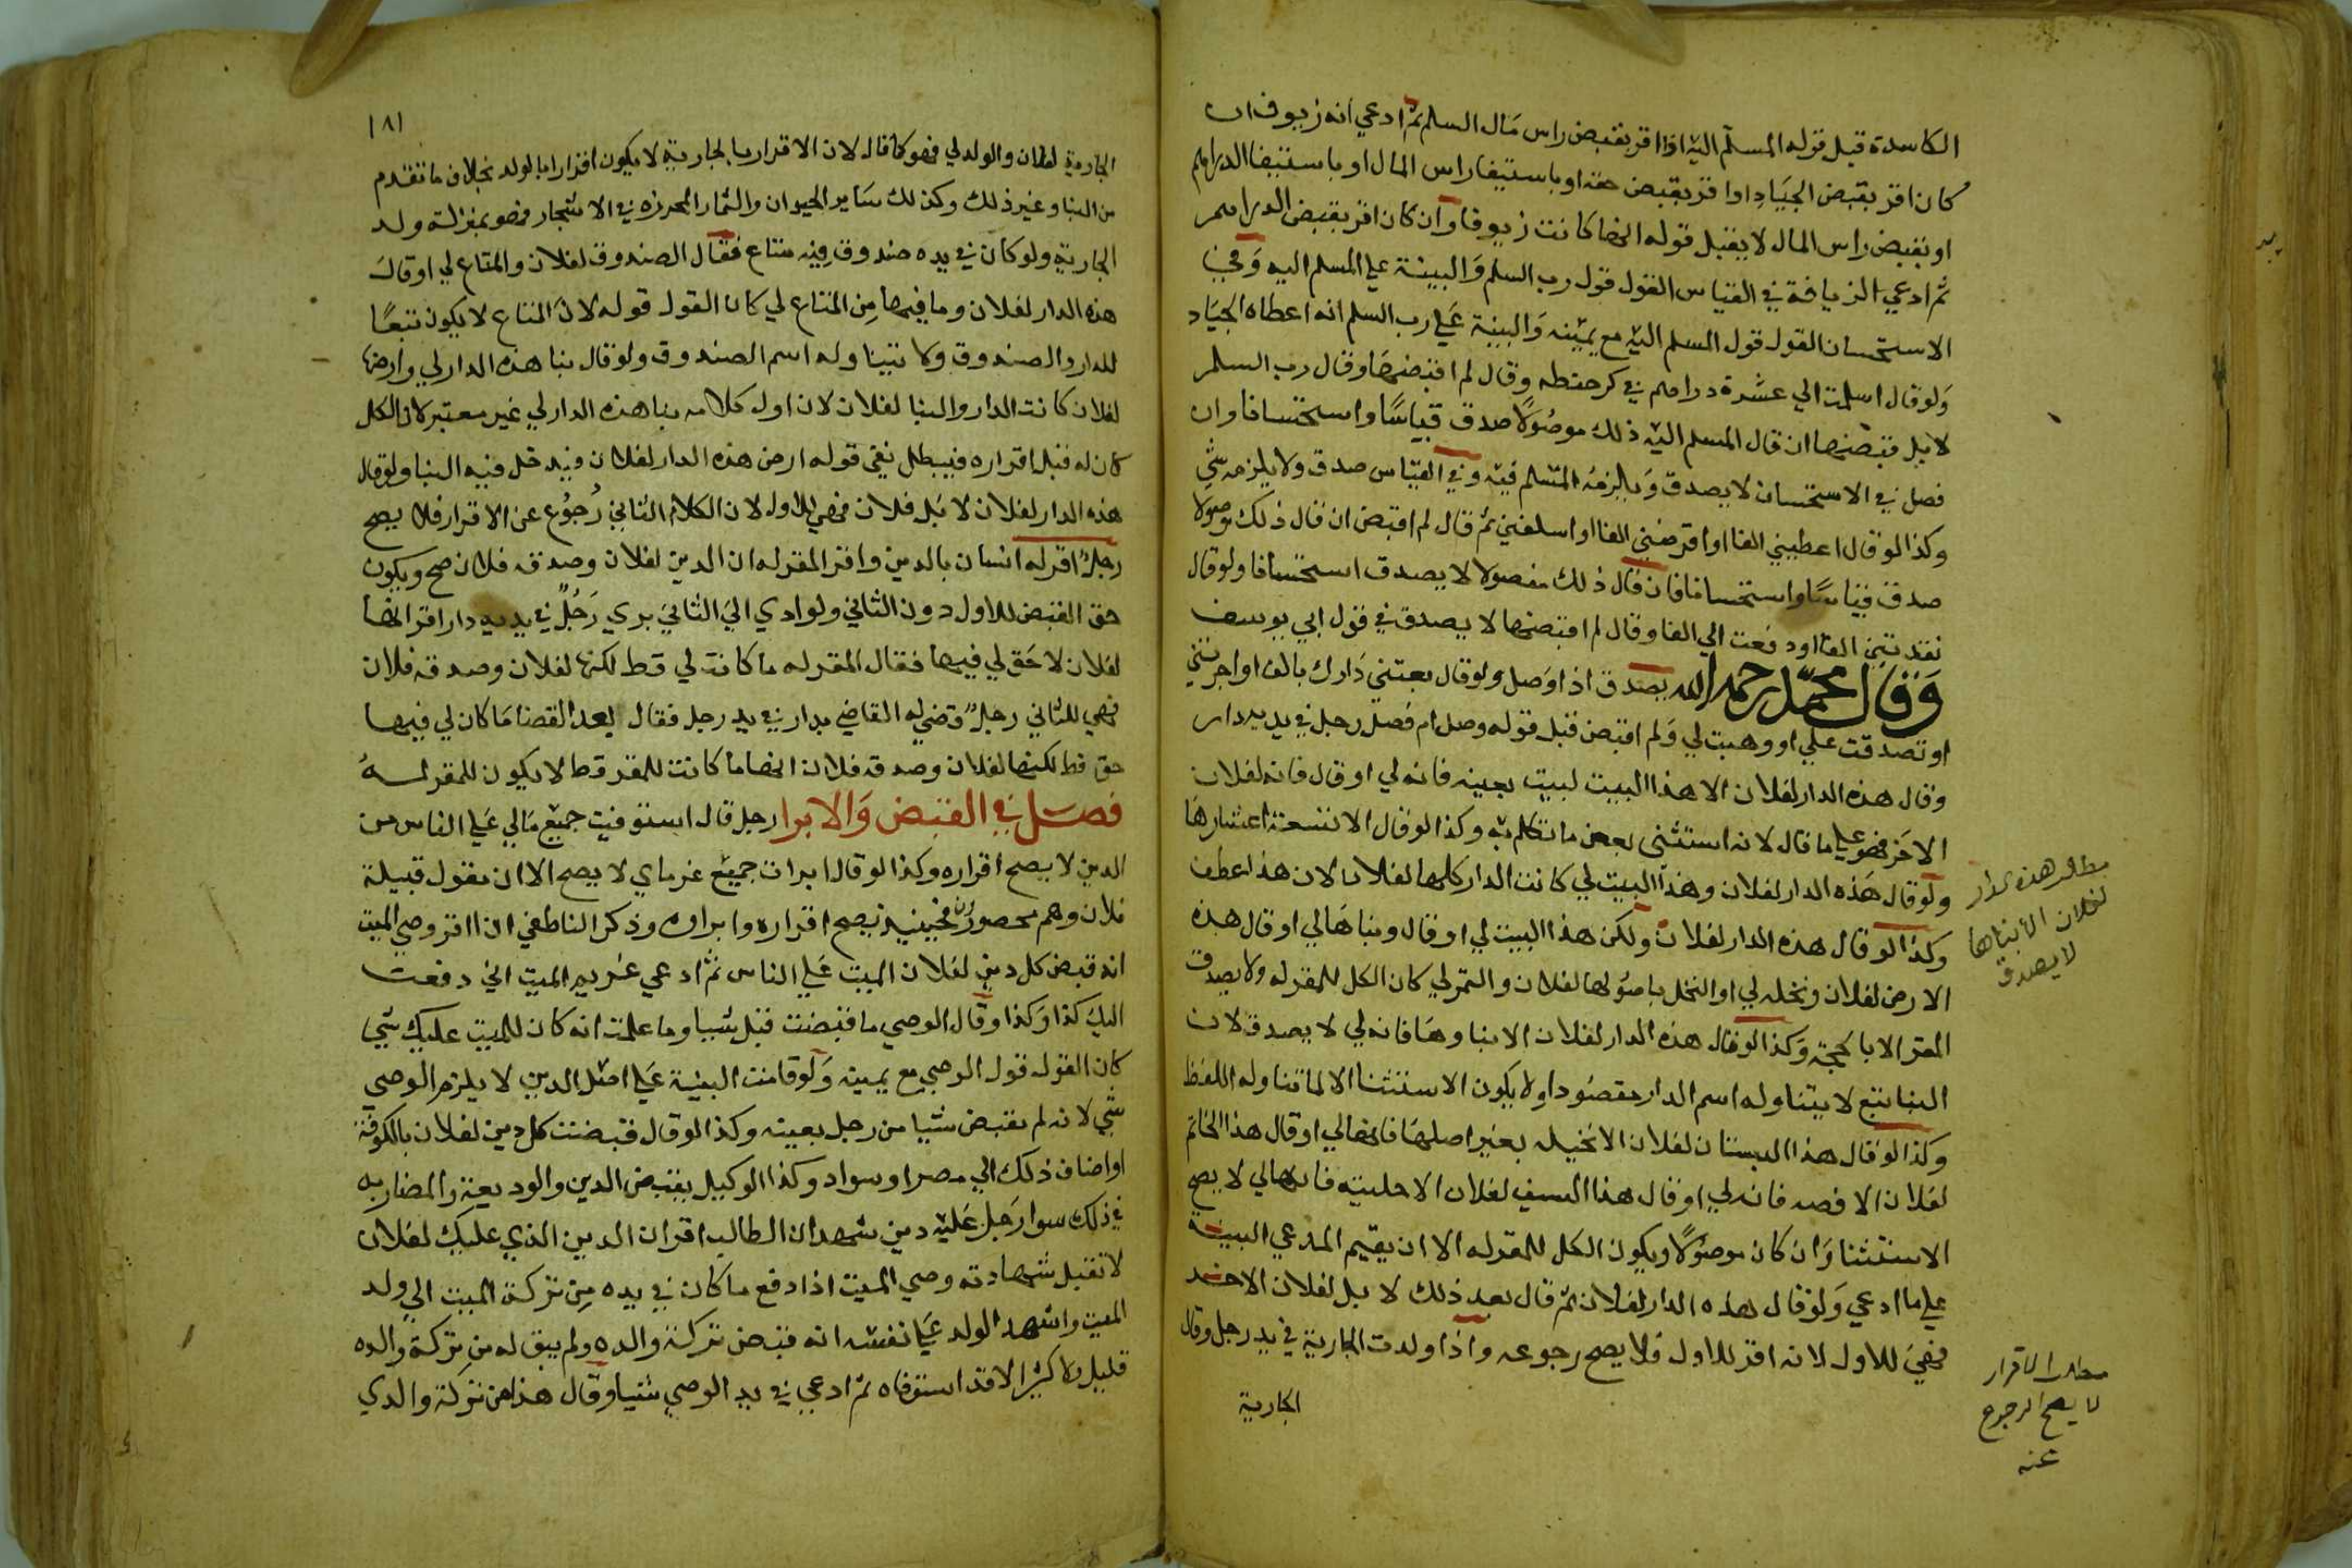 الكاسدة قبل قوله المسلم اليه اذا اقر بقبض راس مال السلم ثم ادعي انه زيوف ان
كان اقر بقبض الجياد او اقر بقبض حقه او باستيفا راس المال او باستيفا الدراهم
او بقبض راس المال لا يقبل قوله انها كانت زيوفا وان كان اقر بقبض الدراهم
ثم ادعي الزيافة في القياس القول قول رب السلم والبينة علي المسلم اليه وفي
الاستحسان القول قول المسلم اليه مع يمينه والبينة علي رب السلم انه اعطاه الجياد
ولو قال اسلمت الي عشرة دراهم في كر حنطه وقال لم اقبضها وقال رب السلم
لا بل قبضتها ان قال المسلم اليه ذلك موصولا صدق قياسا واستحسانا وان
فصل في الاستحسان لا يصدق ويلزمه المسلم فيه وفي القياس صدق ولا يلزمه شي
وكذا لو قال اعطيتني الفا او اقرضتني الفا او اسلفتني ثم قال لم اقبض ان قال ذلك موصولا
صدق قياسا واستحسانا فان قال ذلك مفصولا لا يصدق استحسانا ولو قال
نقدتني الفا او دفعت الي الفا وقال لم اقبضها لا يصدق في قول ابي يوسف
وقال محمد رحمه الله يصدق اذا وصل ولو قال بعتني دارك بالف او اجرتني
او تصدقت علي او وهبت لي ولم اقبض قبل قوله وصل ام فصل رجل في يديه دار
وقال هذه الدار لفلان الا هذا البيت لبيت بعينه فانه لي او قال فانه لفلان
الاخر فهو علي ما قال لانه استثنى بعض ما تكلم به وكذا لو قال الا تسعة اعشارها
ولو قال هذه الدار لفلان وهذا البيت لي كانت الدار كلها لفلان لان هذا عطف
وكذا لو قال هذه الدار لفلان ولكن هذا البيت لي او قال وبناها لي او قال هذه
الارض لفلان ونخله لي او النخل باصولها لفلان والتمر لي كان الكل للمقر له ولا يصدق
المقر الا بالحجة وكذا لو قال هذه الدار لفلان الا بناوها فانه لي لا يصدق لان
البنا تبع لا يتناوله اسم الدار مقصودا ولا يكون الاستثنا الا لما تناوله اللفظ
وكذا لو قال هذا البستان لفلان الا نخيله بغير اصلها فانها لي او قال هذا الخاتم
لفلان الا فصه فانه لي او قال هذا السيف لفلان الا حليته فانها لي لا يصح
الاستثنا وان كان موصولا ويكون الكل للمقر له الا ان يقيم المدعي البينة
علي ما ادعي ولو قال هذه الدار لفلان ثم قال بعد ذلك لا بل لفلان الاخر
فهي للاول لانه اقر للاول فلا يصح رجوعه واذا ولدت الجارية في يد رجل وقال
الجارية
هذه الدار
لفلان الا بناها
لا يصدق
مطلب الاقرار
لا يصح الرجوع
عنه
١٨١
الجارية لفلان والولد لي فهو كما قال لان الاقرار بالجارية لا يكون اقرارا بالولد بخلاف ما تقدم
من البنا وغير ذلك وكذلك ساير الحيوان والثمار المحرزه في الاشجار فهو بمنزلة ولد
الجارية ولو كان في يده صندوق فيه متاع فقال الصندوق لفلان والمتاع لي او قال
هذه الدار لفلان وما فيها من المتاع لي كان القول قوله لان المتاع لا يكون تبعا
للدار والصندوق ولا يتناوله اسم الصندوق ولو قال بنا هذه الدار لي وارضها
لفلان كانت الدار والبنا لفلان لان اول كلامه بنا هذه الدار لي غير معتبر لان الكل
كان له قبل اقراره فيبطل بقي قوله ارض هذه الدار لفلان فيدخل فيه البنا ولو قال
هذه الدار لفلان لا بل فلان فهي للاول لان الكلام الثاني رجوع عن الاقرار فلا يصح
رجل اقر له انسان بالدين واقر المقر له ان الدين لفلان وصدقه فلان صح ويكون
حق القبض للاول دون الثاني ولو ادي الي الثاني بري رجل في يديه دار اقر انها
لفلان لا حق لي فيها فقال المقر له ما كانت لي قط لكنها لفلان وصدقه فلان
فهي للثاني رجل قضي له القاضي بدار في يد رجل فقال بعد القضا ما كان لي فيها
حق قط لكنها لفلان وصدقه فلان انها ما كانت للمقر قط لا يكون للمقر له
فصل في القبض والابرا رجل قال استوفيت جميع مالي علي الناس من
الدين لا يصح اقراره وكذا لو قال ابرات جميع غرماي لا يصح الا ان يقول قبيلة
فلان وهم محصورون فحينيذ يصح اقراره وابراوه وذكر الناطفي اذا اقر وصي الميت
انه قبض كل دين لفلان الميت علي الناس ثم ادعي غريم الميت اني دفعت
اليك كذا وكذا وقال الوصي ما قبضت قبل شيا وما علمت انه كان للميت عليك شي
كان القول قول الوصي مع يمينه ولو قامت البينة علي اصل الدين لا يلزم الوصي
شي لانه لم يقبض شيا من رجل بعينه وكذا لو قال قبضت كل دين لفلان بالكوفة
او اضاف ذلك الي مصر او سواد وكذا الوكيل بقبض الدين والوديعة والمضاربه
في ذلك سوا رجل عليه دين شهد ان الطالب اقر ان الدين الذي عليك لفلان
لا تقبل شهادته وصي الميت اذا دفع ما كان في يده من تركة الميت الي ولد
الميت واشهد الولد علي نفسه انه قبض تركة والده ولم يبق له من تركة والده
قليل ولا كثير الا قد استوفاه ثم ادعي في يد الوصي شيا وقال هذا من تركة والدي